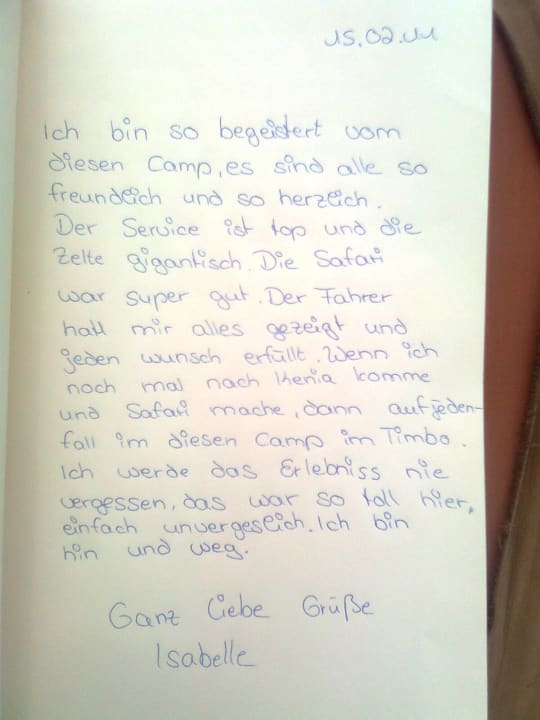 15.02.11
Ich bin so begeistert vom
diesen Camp, es sind alle so
freundlich und so herzlich.
Der Service ist top und die
Zelte gigantisch. Die Safari
war super gut. Der Fahrer
hatt mir alles gezeigt und
jeden wunsch erfüllt. Wenn ich
noch mal nach Kenia komme
und Safari mache, dann aufjeden-
fall im diesen Camp im Timbo.
Ich werde das Erlebniss nie
vergessen, das war so toll hier,
einfach unvergeslich. Ich bin
hin und weg.
Ganz liebe Grüße
Isabelle